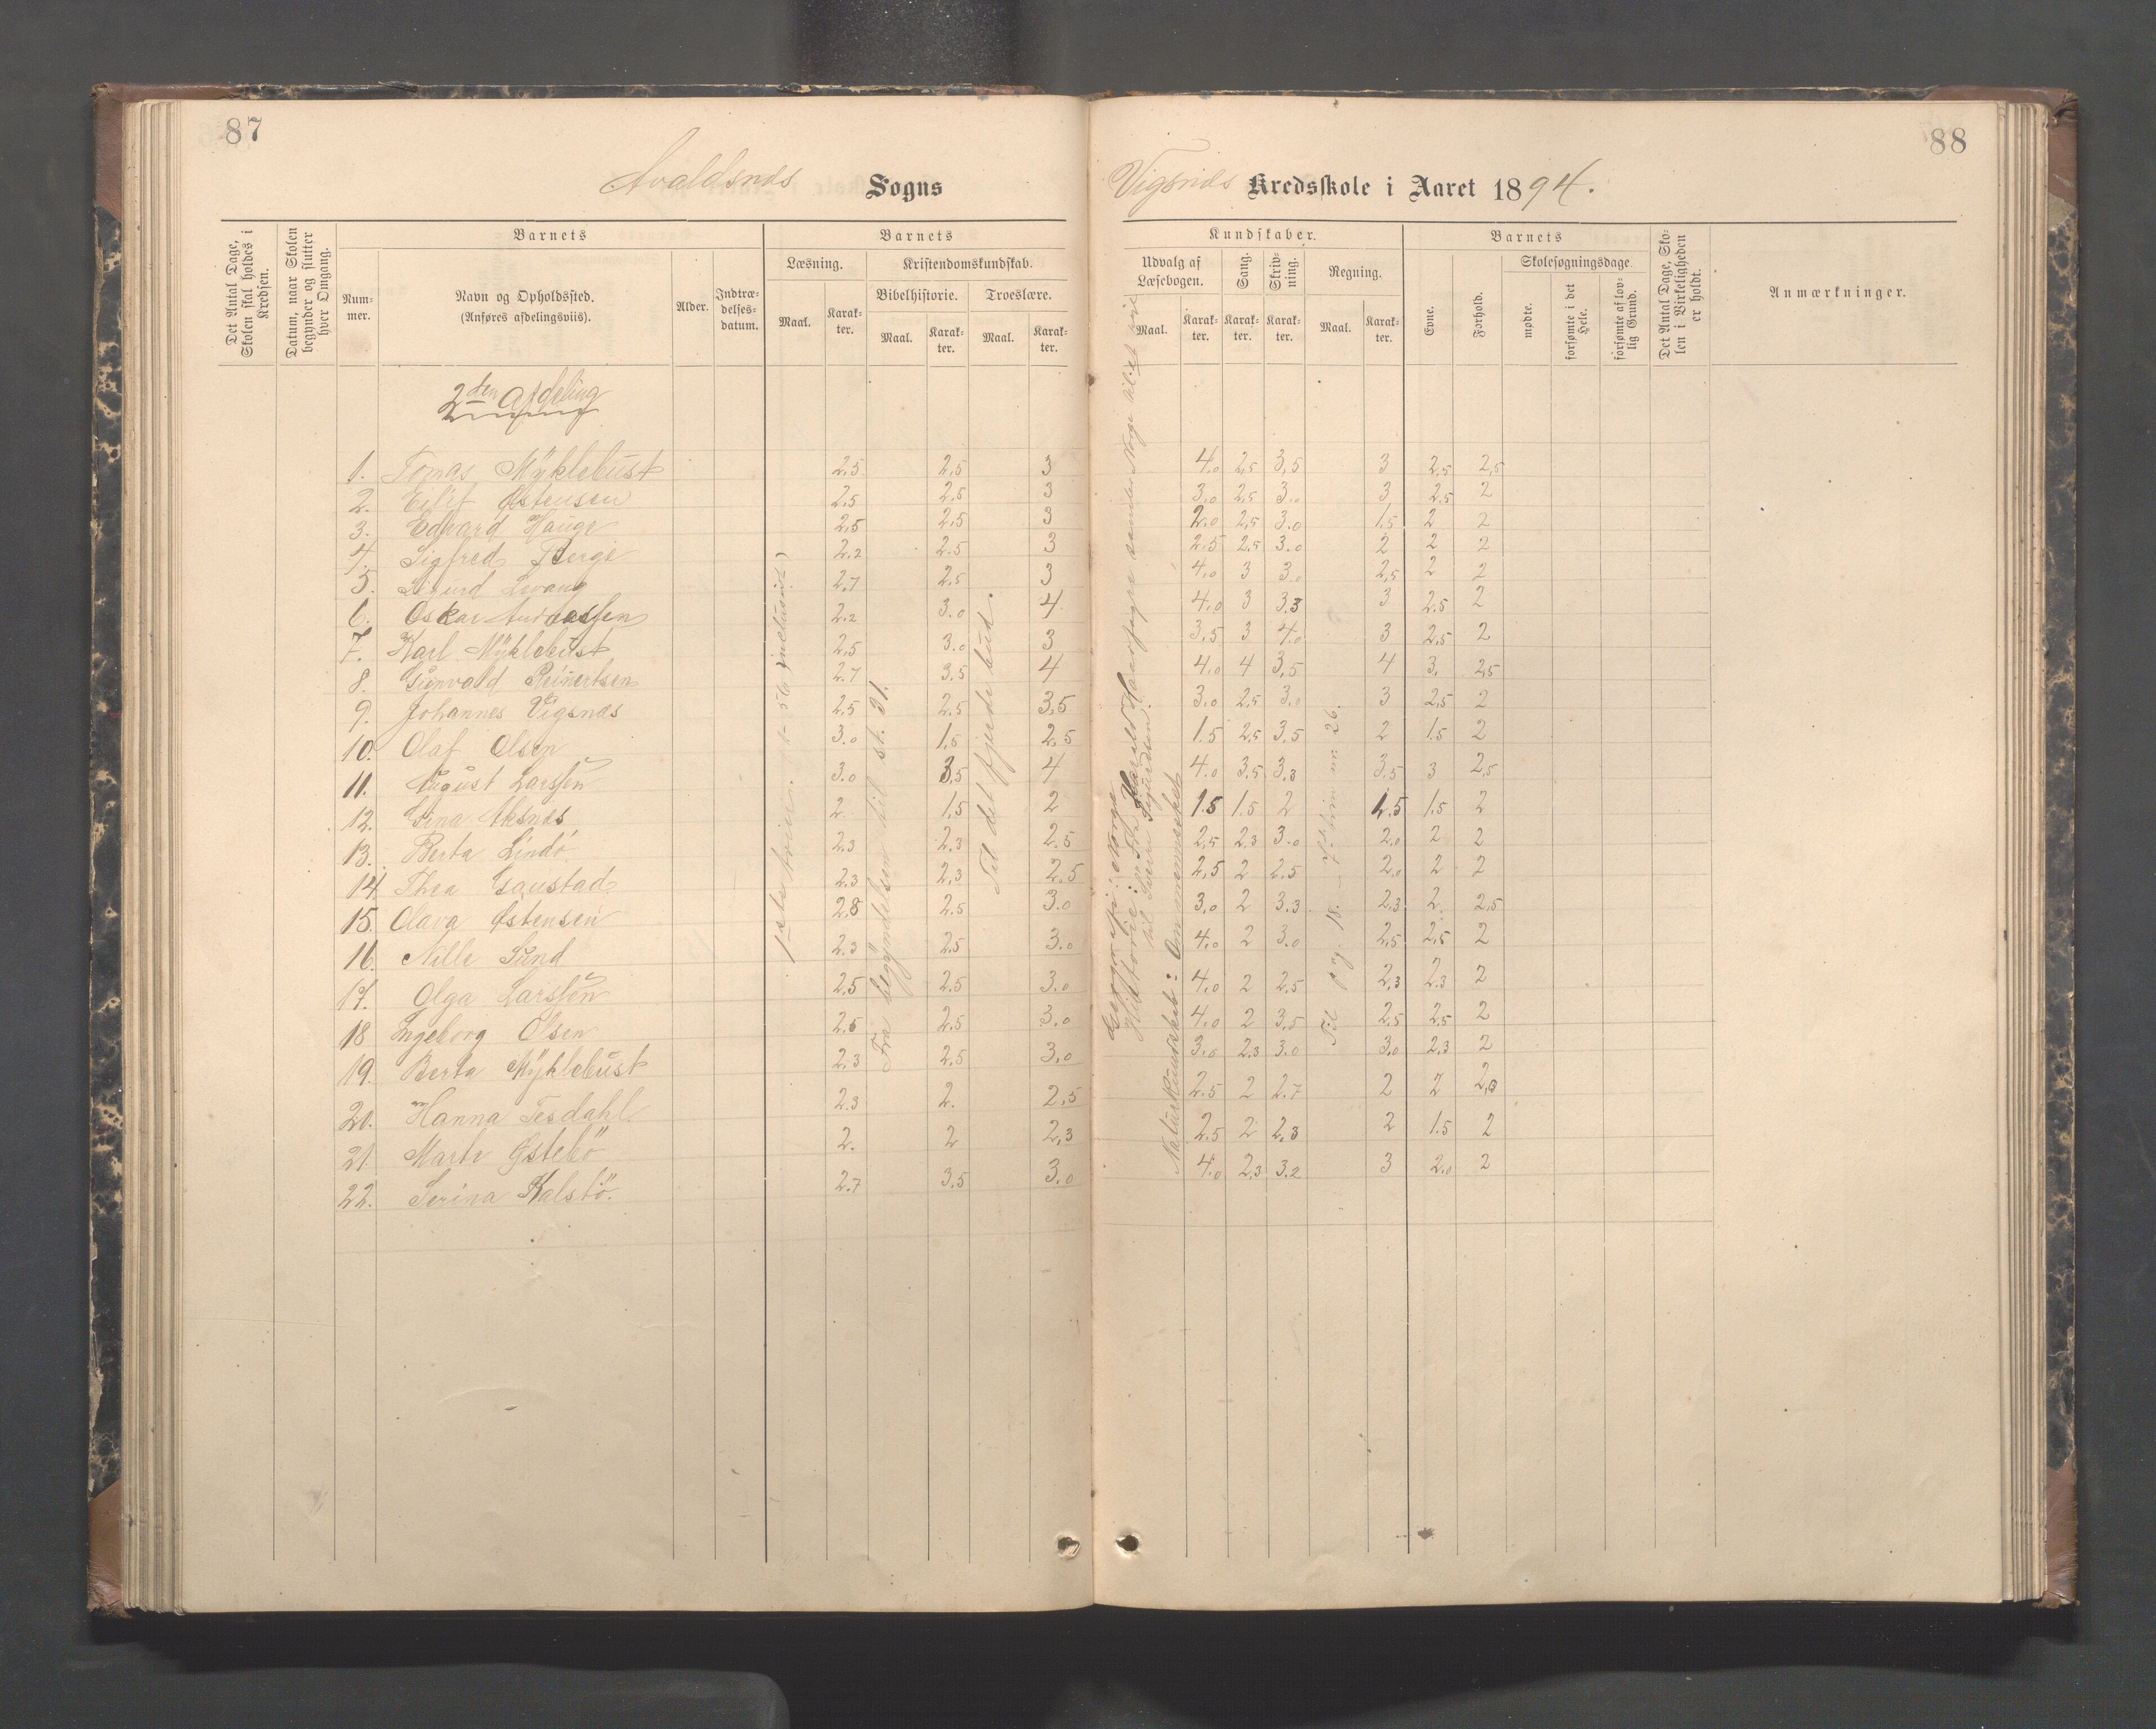 87
Avaldsnæs Sogns
Det Antal Dage, Skolen skal holdes i Kredsen.
Datum, naar Skolen begynder og slutter hver Omgang.
Barnets
Nummer.
Navn og Opholdssted.
(Anføres afdelingsviis).
Alder.
Indtrædelsesdatum.
Barnets
Læsning.
Maal.
Karakter.
Kristendomskundskab.
Bibelhistorie.
Maal.
Karakter.
Troeslære.
Maal.
Karakter.
2den Afdeling
1. Tomas Myklebust 2,5 2,5 3
2. Eilif Østensen 2,5 2,5 3
3. Edvard Hauge 2,5 2,5 3
4. Sigfred Berge 2,2 2.5 3
5. Sigurd Levang 2,7 2,5 3
6. Oskar Andreassen 2,2 3.0 4
7. Karl Myklebust 2,5 3.0 3
8. Gunvald Reinertsen 2.7 3,5 4
9. Johannes Vigsnæs 2,5 2,5 3,5
10. Olaf Olsen 3.0 1,5 2,5
11. August Larssen 3.0 3,5 4
12. Gina Aksnæs 2 1,5 2
13. Berta Lindö 2.3 2.3 2.5
14. Thea Gaustad 2.3 2,3 2,5
15. Olava Østensen 2,8 2.5 3.0
16. Nille Sund 2.3 2,5 3.0
17. Olga Larssen 2,5 2.5 3.0
18 Ingeborg Olsen 2,5 2,5 3.0
19. Berta Myklebust 2.3 2,5 3.0
20. Hanna Tesdahl 2.3 2. 2,5
21 Marte Østebö 2. 2 2,3
22. Serina Kalstö. 2.7 3,5 3.0
Fra begyndelsen til st. 31.
Til det fjerde bud.
88
Vigsnæs Kredsskole i Aaret 1894.
Kundskaber.
Udvalg af Læsebogen.
Maal.
Karakter.
Sang.
Karakter.
Skrivning.
Karakter.
Regning.
Maal.
Karakter.
Barnets
Evne.
Forhold.
Skolesøgningsdage.
mødte.
forsømte i det Hele.
forsømte af lovlig Grund.
Det Antal Dage, Skolen i Virkeligheden er holdt.
Anmærkninger.
4.0 2,5 3,5 3 2,5 2,5
3.0 2,5 3.0 3 2.5 2
2.0 2,5 3.0 1.5 2 2
2.5 2,5 3.0 2 2 2
4.0 3 3.0 2,5 2 2
4.0 3 3,3 3 2.5 2
3,5 3 4.0 3 2,5 2
4.0 4 3,5 4 3. 2,5
3.0 2,5 3.0 3 2,5 2
1.5 2,5 3.5 2 1.5 2
4.0 3,5 3,3 3,5 3 2,5
1.5 1.5 2 1.5 1.5 2
2,5 2,3 3.0 2.0 2 2
2,5 2 2.5 2.0 2 2
3,0 2 3.3 2,3 2. 2,5
4.0 2 3.0 2,5 2,5 2
4.0 2 2.5 2,3 2.3 2
4.0 2 3,5 2.5 2,5 2
3.0 2,3 3.0 3,0 2,3 2
2.5 2 2.7 2 2 2,3
2.5 2 2,3 2 1.5 2
4.0 2,3 3.2 3 2.0 2
Geografi: Norge
Historie: Fra Harald Haarfagre samler Norge til et rige
til Sverre Sigurdsen.
Naturkundskab: Om mennesket
Til pag. 18.